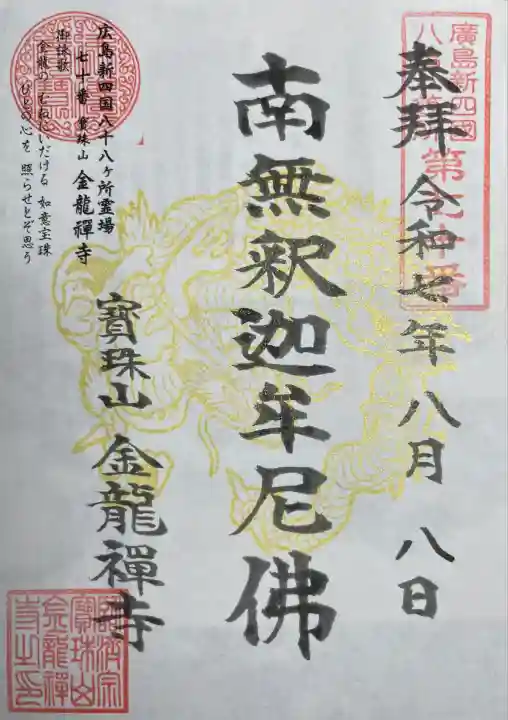 廣島新四國
八十八第七十番
奉拝 令和七年 八月 八日
南無釈迦牟尼佛
寶珠山 金龍禪寺
広島新四国八十八ヶ所霊場
七十番 寳珠山 金龍禅寺
御詠歌
金龍の むねにいだける 如意宝珠
ひとの心を 照らせとぞ思う
寶珠山
金龍禪
寺之印